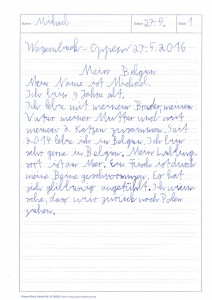 Name: Michael Datum: 27.5. Blatt: 1
Wezembeek-Oppem 27.5.2016
Mein Belgien
Mein Name ist Michael.
Ich bin 9 Jahre alt.
Ich lebe mit meinem Bruder, meinem
Vater meiner Mutter und mit
meinen 2 Katzen zusammen. Seit
2014 lebe ich in Belgien. Ich bin
sehr gerne in Belgien. Mein Lieblings
ort ist am Meer. Ein Fisch ist durch
meine Beine geschwommen. Es hat
sich glibberig angefühlt. Ich wün
sche, dass wir zurück nach Polen
ziehen.